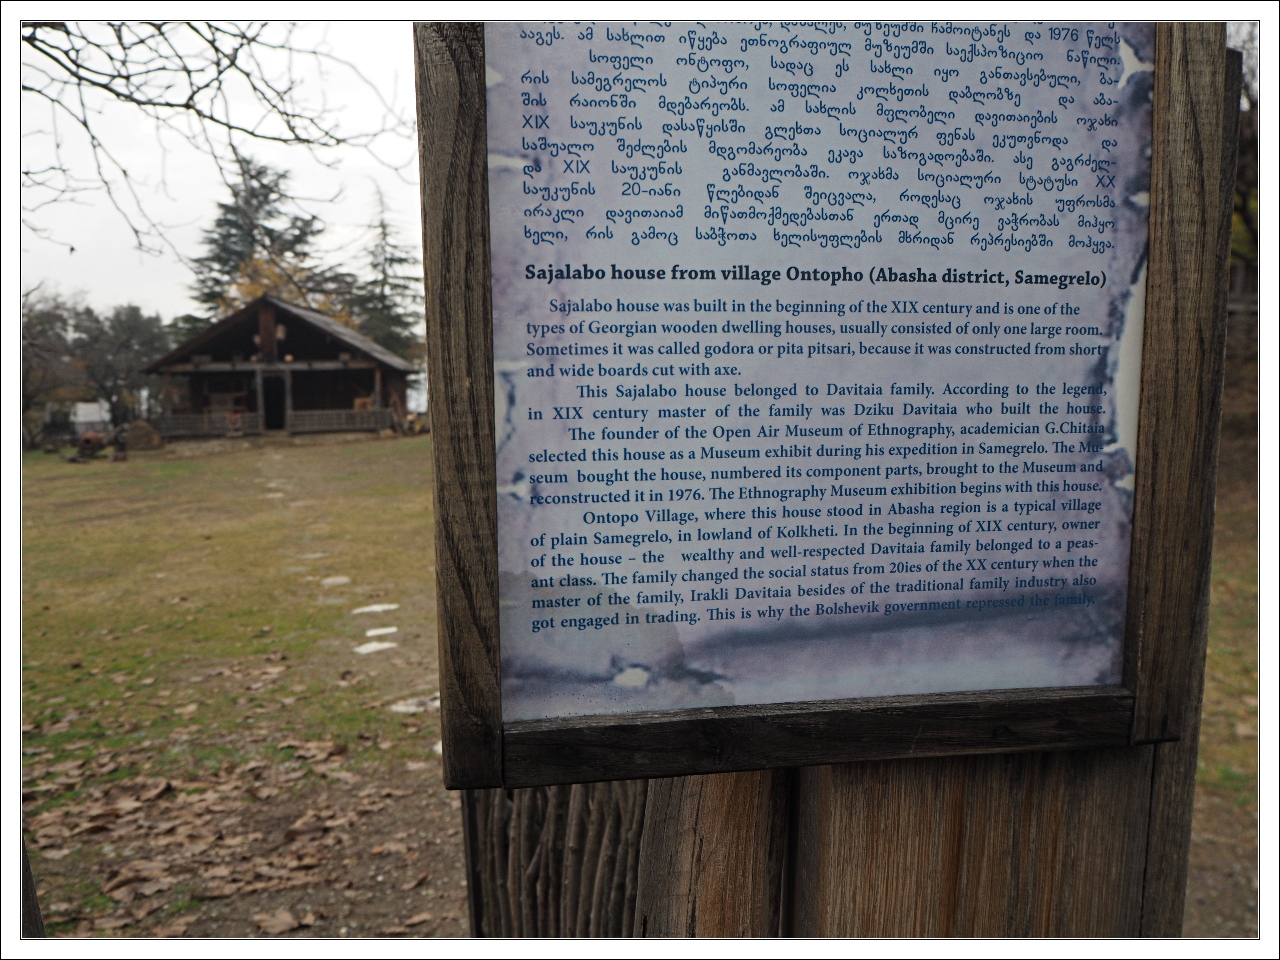 ააგეს. ამ სახლით იწყება ეთნოგრაფიულ მუზეუმში საექსპოზიციო ნაწილი.
სოფელი ონტოფო, სადაც ეს სახლი იყო განთავსებული, ბა-
რის სამეგრელოს ტიპური სოფელია კოლხეთის დაბლობზე და აბა-
შის რაიონში მდებარეობს. ამ სახლის მფლობელი დავითაიების ოჯახი
XIX საუკუნის დასაწყისში გლეხთა სოციალურ ფენას ეკუთვნოდა და
საშუალო შეძლების მდგომარეობა ეკავა საზოგადოებაში. ასე გაგრძელ-
და XIX საუკუნის განმავლობაში. ოჯახმა სოციალური სტატუსი XX
საუკუნის 20-იანი წლებიდან შეიცვალა, როდესაც ოჯახის უფროსმა
ირაკლი დავითაიამ მიწათმოქმედებასთან ერთად მცირე ვაჭრობას მიჰყო
ხელი, რის გამოც საბჭოთა ხელისუფლების მხრიდან რეპრესიებში მოჰყვა.
Sajalabo house from village Ontopho (Abasha district, Samegrelo)
Sajalabo house was built in the beginning of the XIX century and is one of the
types of Georgian wooden dwelling houses, usually consisted of only one large room.
Sometimes it was called godora or pita pitsari, because it was constructed from short
and wide boards cut with axe.
This Sajalabo house belonged to Davitaia family. According to the legend,
in XIX century master of the family was Dziku Davitaia who built the house.
The founder of the Open Air Museum of Ethnography, academician G.Chitaia
selected this house as a Museum exhibit during his expedition in Samegrelo. The Mu-
seum bought the house, numbered its component parts, brought to the Museum and
reconstructed it in 1976. The Ethnography Museum exhibition begins with this house.
Ontopo Village, where this house stood in Abasha region is a typical village
of plain Samegrelo, in lowland of Kolkheti. In the beginning of XIX century, owner
of the house – the wealthy and well-respected Davitaia family belonged to a peas-
ant class. The family changed the social status from 20ies of the XX century when the
master of the family, Irakli Davitaia besides of the traditional family industry also
got engaged in trading. This is why the Bolshevik government repressed the family.